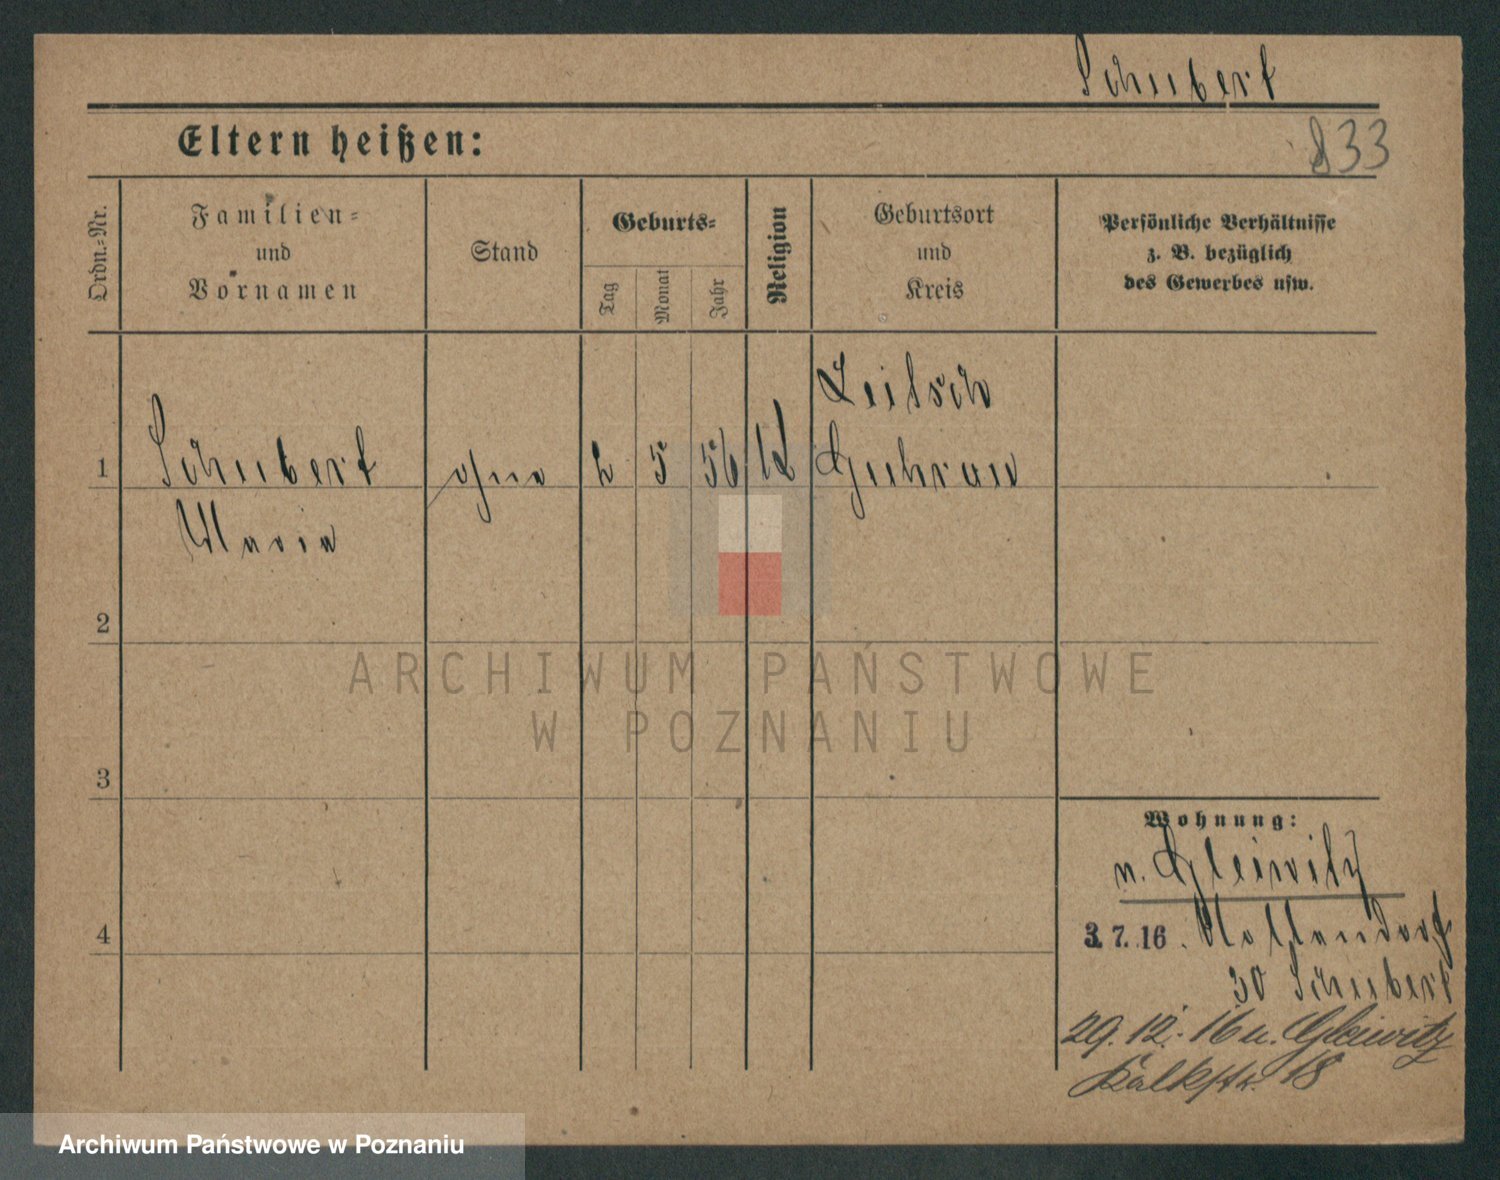 Schubert
833
Eltern heißen:
Ordn.-Nr.
Familien-
und
Vornamen
Stand
Geburts-
Tag
Monat
Jahr
Religion
Geburtsort
und
Kreis
Persönliche Verhältnisse
z. B. bezüglich
des Gewerbes usw.
1
Schubert
Maria
ohne
2
5
56
Guhrau
2
3
4
ARCHIWUM PAŃSTWOWE
W POZNANIU
Wohnung:
n. Gleiwitz
3.7.16. Nollendorf
30 Schubert
29.12.16 n. Gleiwitz
Kalkstr. 18
Archiwum Państwowe w Poznaniu